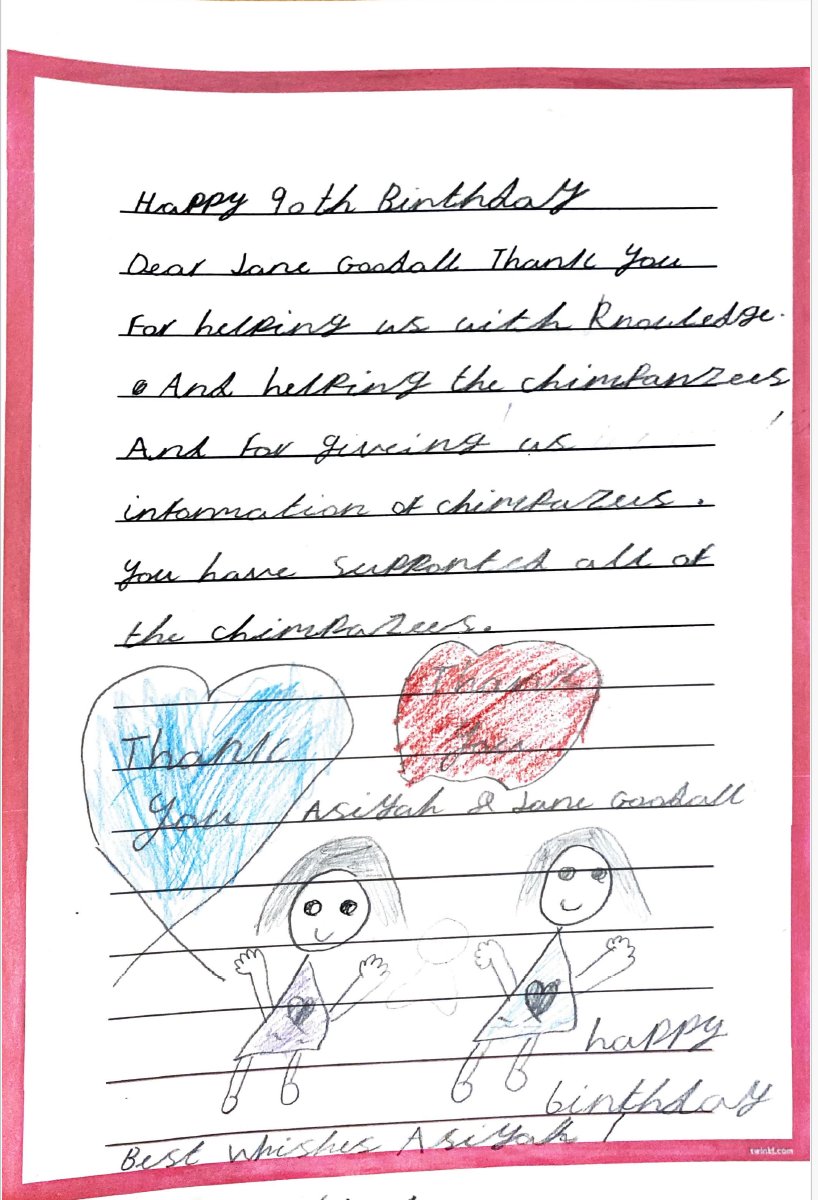 Happy 90th Birthday
Dear Jane Goodall Thank you
For helping us with knowledge.
And helping the chimpanzees
And for giveing us
information of chimpazees.
You have supported all of
the chimpazees.
Thank
you
Thank
you
Asiyah & Jane Goodall
happy
birthday
Best Whishes Asiyah !
twinkl.com